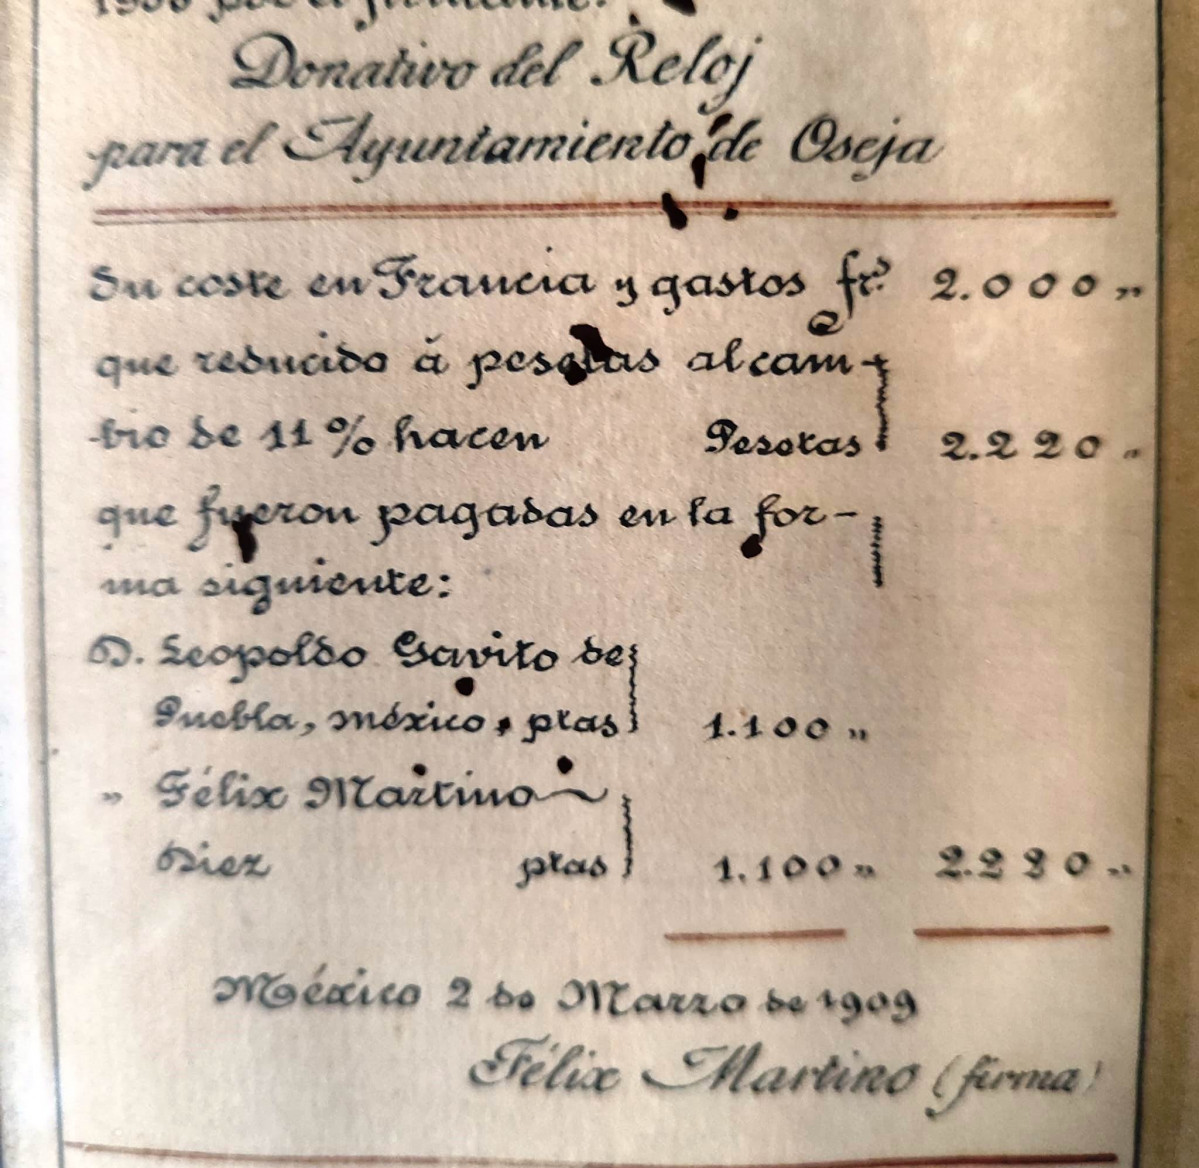 1908 por el firmante.
Donativo del Reloj
para el Ayuntamiento de Oseja
Su coste en Francia y gastos frs. 2.000 "
que reducido á pesetas al cam-
bio de 11 % hacen Pesetas 2.220 "
que fueron pagadas en la for-
ma siguiente:
D. Leopoldo Gavito de
Puebla, México, ptas 1.100 "
" Félix Martino
Diez ptas 1.100 " 2.220 "
México 2 de Marzo de 1909
Félix Martino (firma)